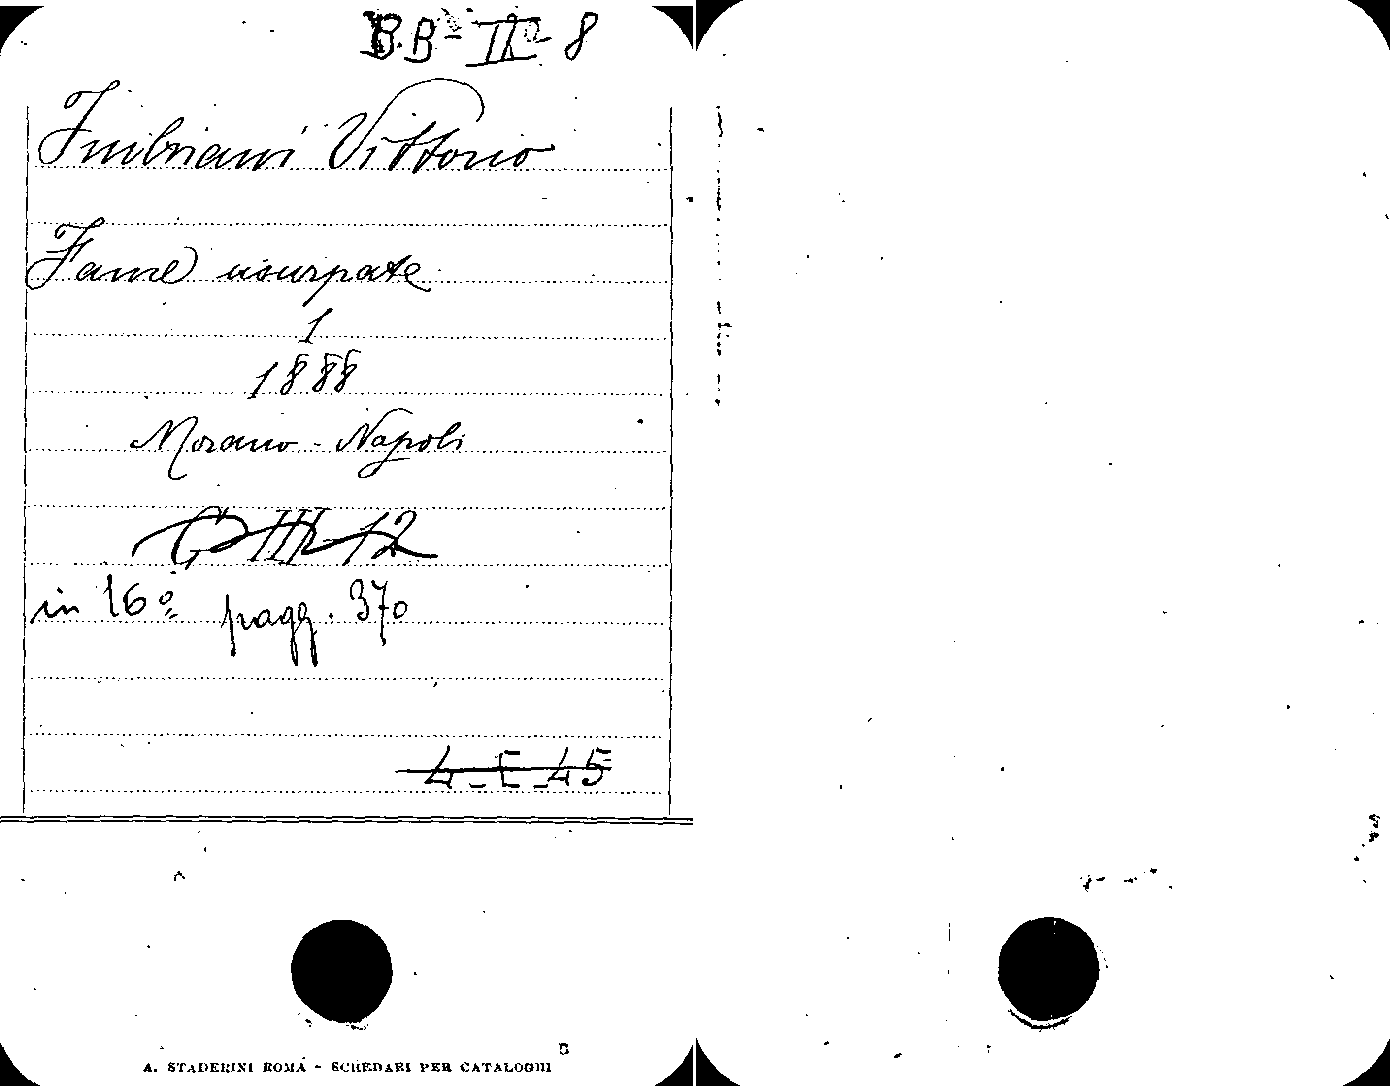 B.B - II - 8
Imbriani Vittorio
Fame usurpate
1
1888
Morano - Napoli
G III 12
in 16º pagg. 370
4 - E - 45
A. STADERINI ROMA - SCHEDARI PER CATALOGHI